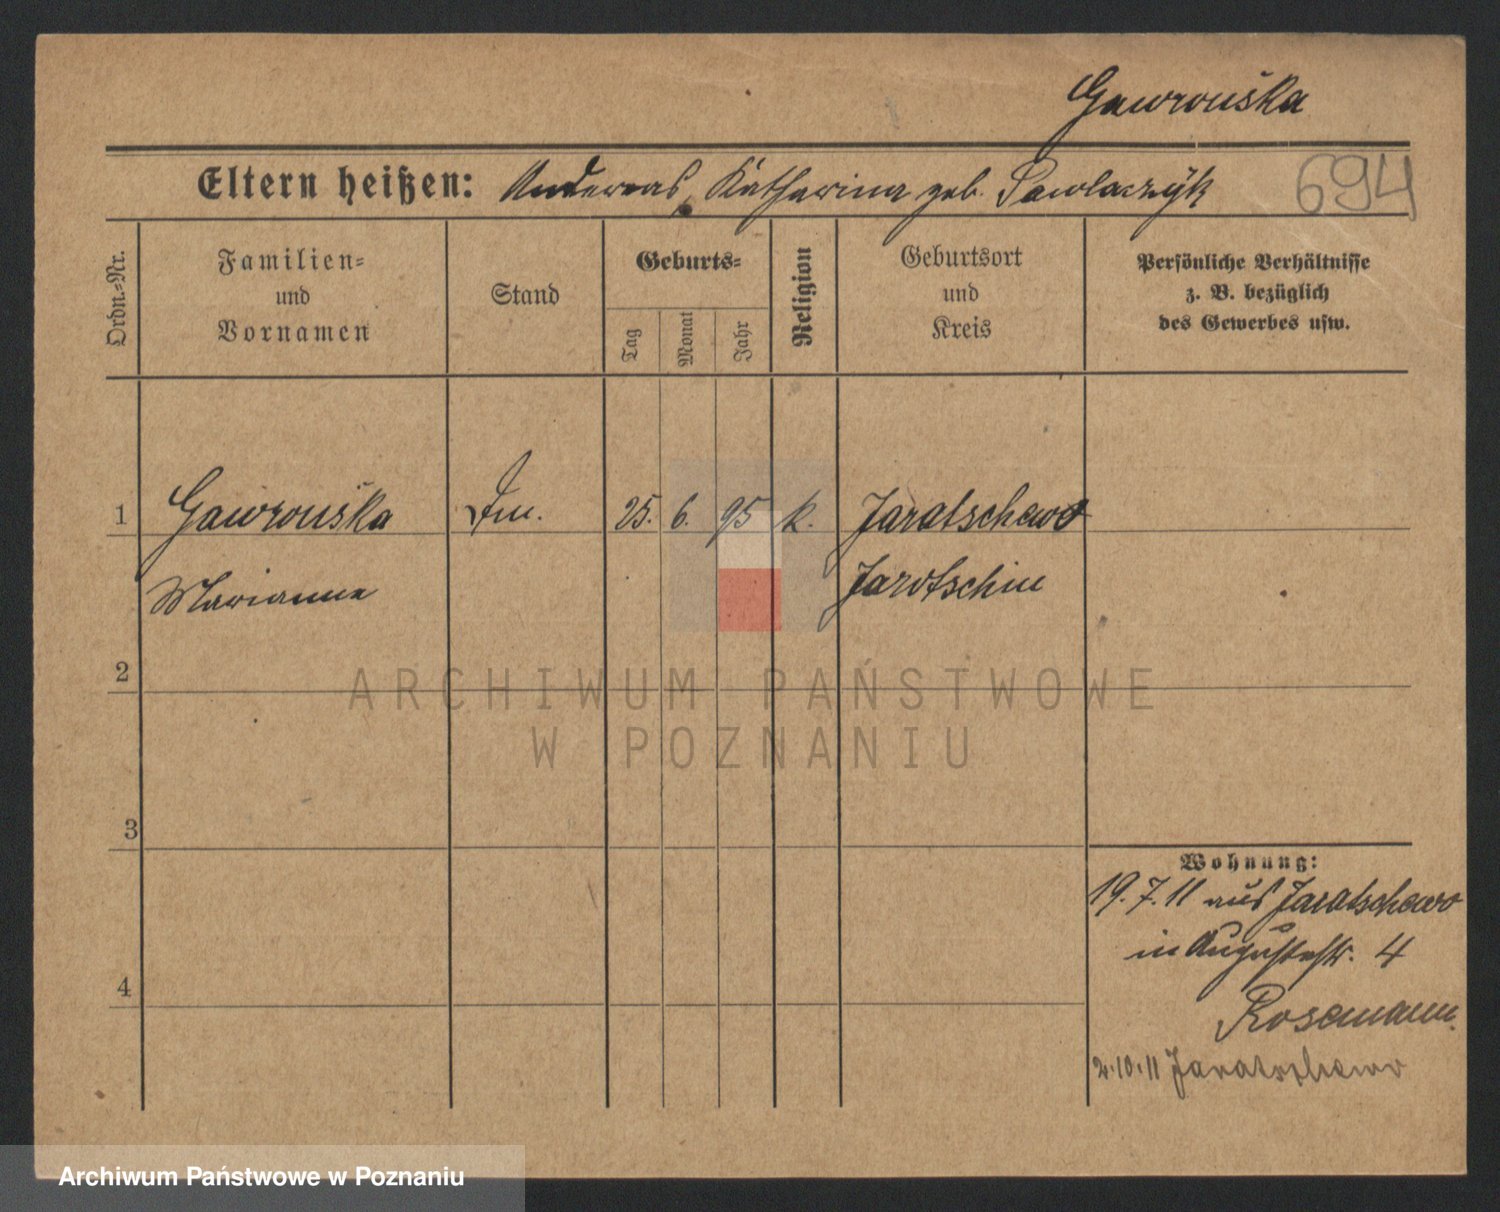 Gawrońska
Eltern heißen: Andreas, Katharina geb. Pawlaczyk
694
Ordn.=Nr.
Familien=
und
Vornamen
Stand
Geburts=
Tag
Monat
Jahr
Religion
Geburtsort
und
Kreis
Persönliche Verhältnisse
z. B. bezüglich
des Gewerbes usw.
1 Gawrońska 25. 6. 95 k. Jaratschewo
Marianna Jarotschin
2
3
4
Wohnung:
19.7.11 aus Jaratschewo
in Augustastr. 4
Rosemann.
2.10.11 Jaratschewo
ARCHIWUM PAŃSTWOWE
W POZNANIU
Archiwum Państwowe w Poznaniu